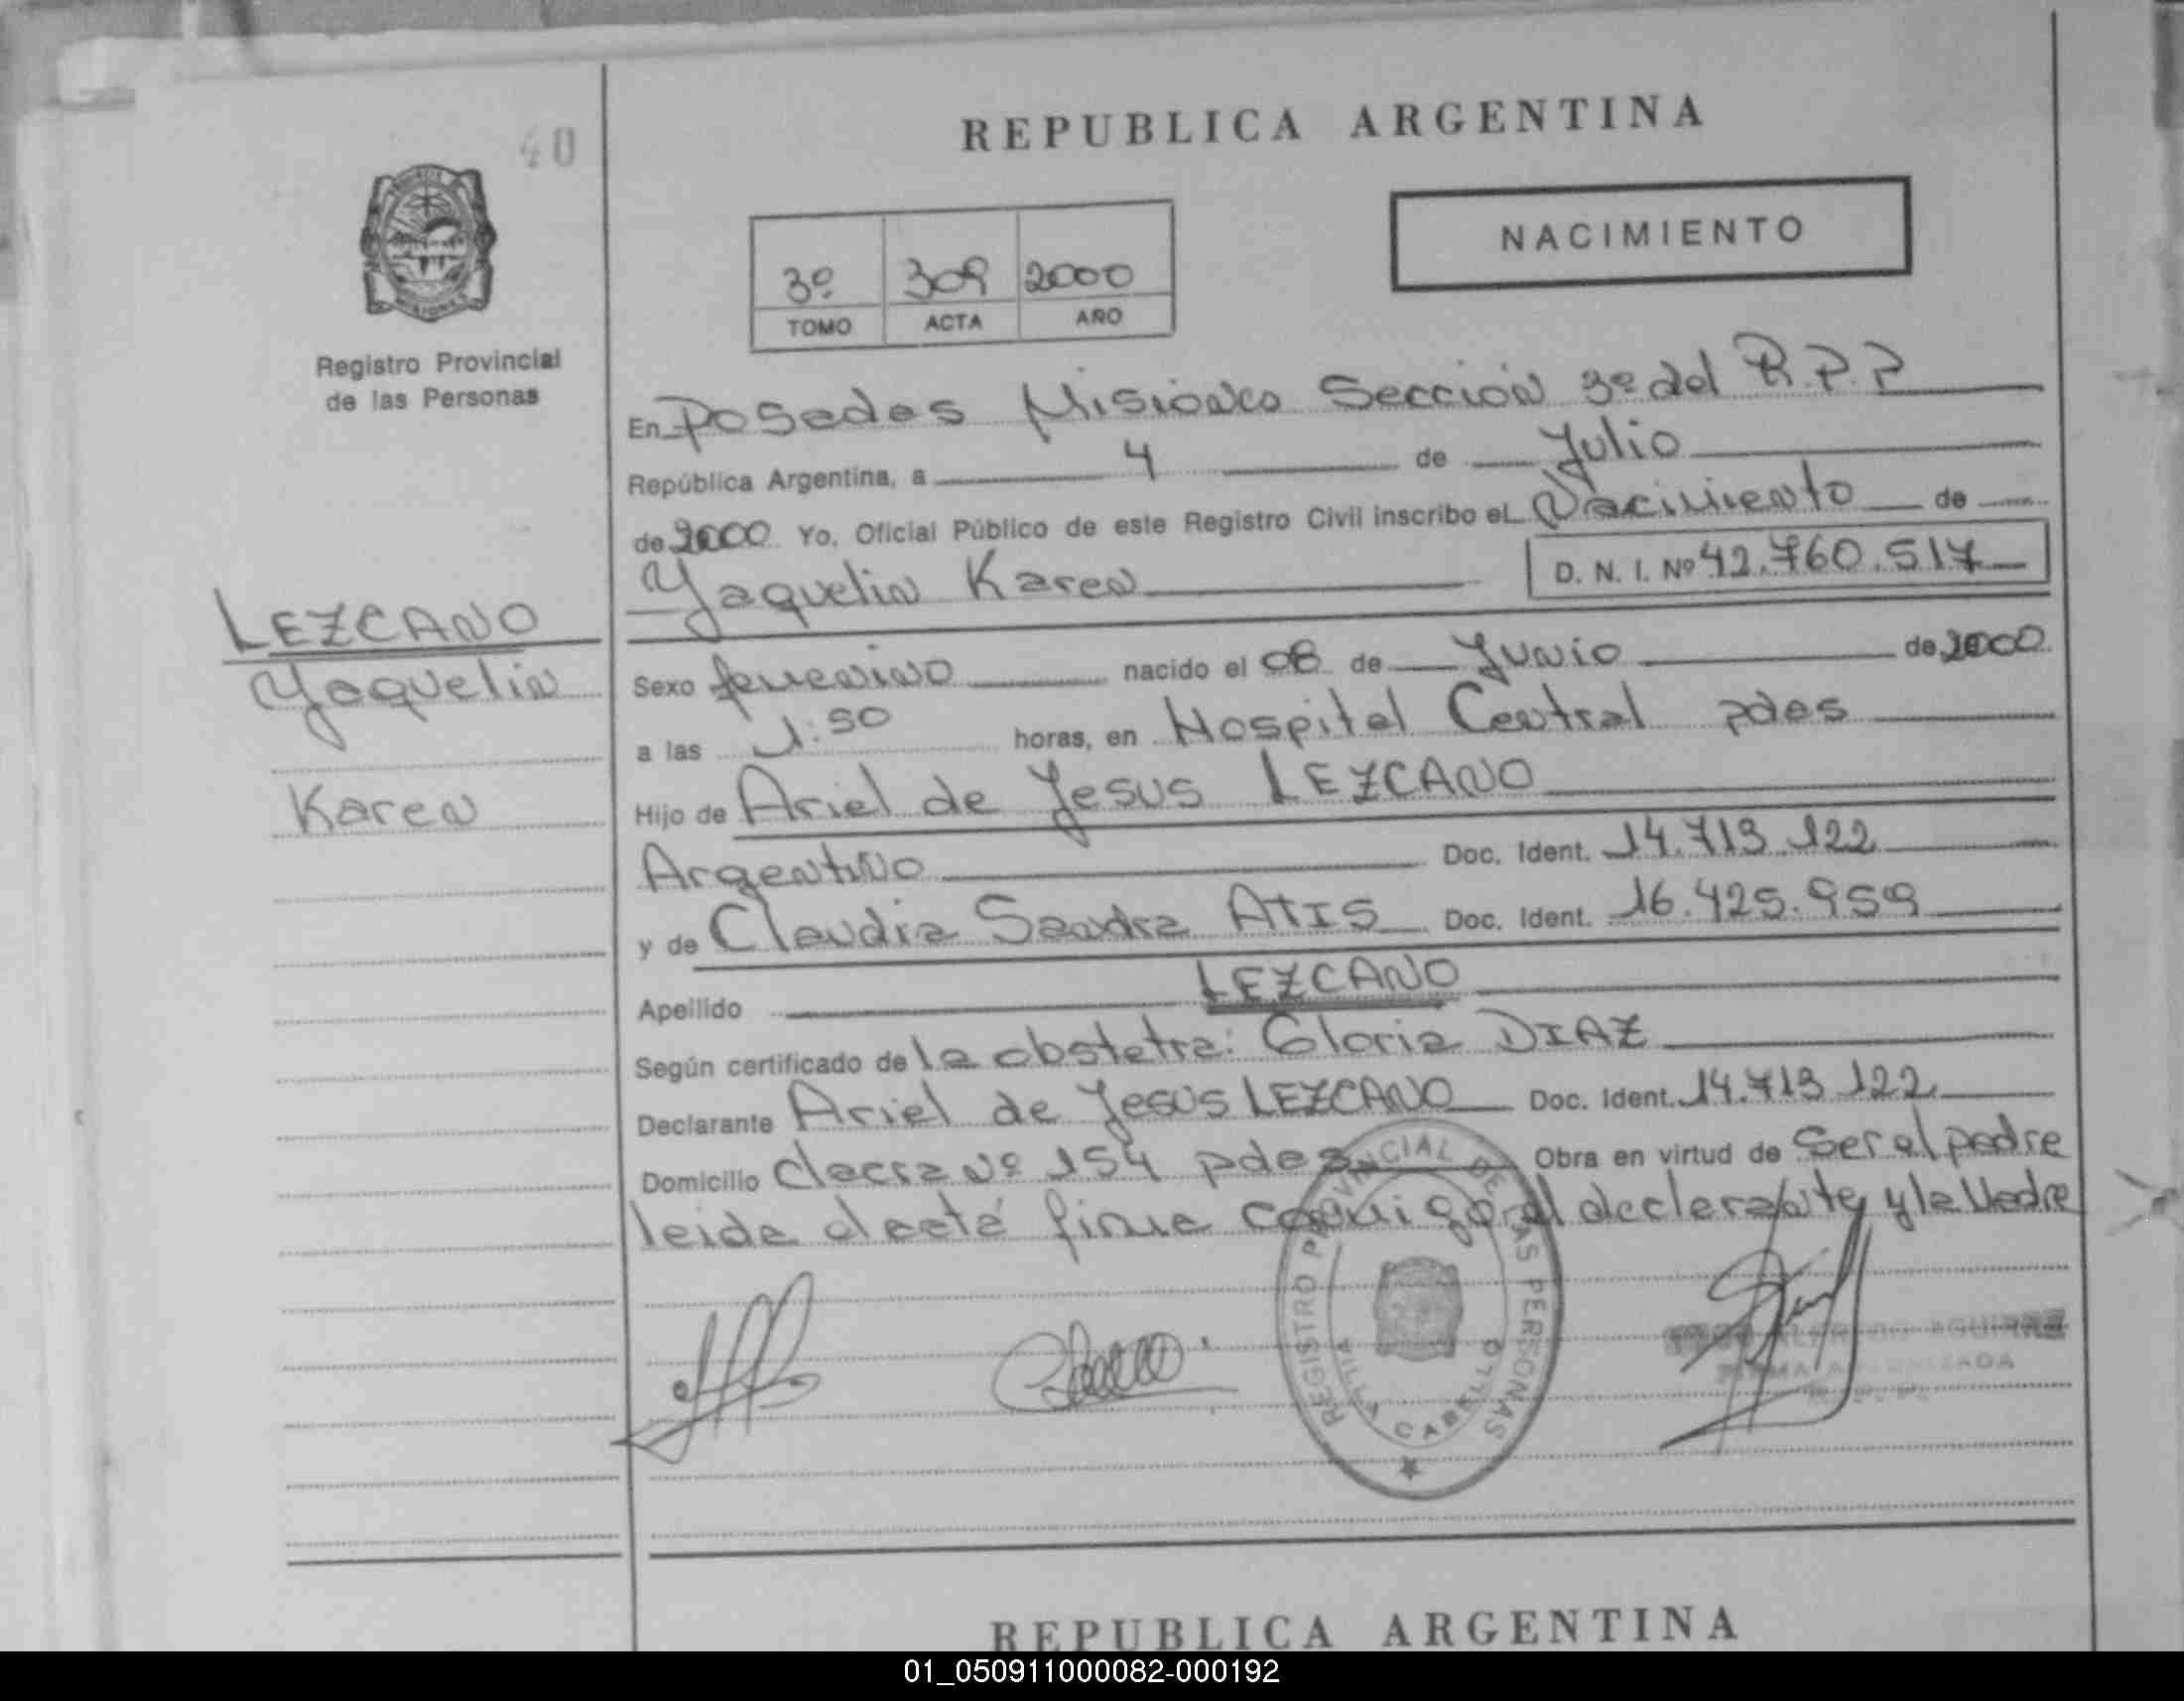 40
REPUBLICA ARGENTINA
NACIMIENTO
3º 309 2000
TOMO ACTA AÑO
Registro Provincial
de las Personas
En Posadas Misiones Sección 3º del R.P.P
República Argentina, a 4 de Julio
de 2000 Yo, Oficial Público de este Registro Civil inscribo el Nacimiento de
Yaquelin Karen D. N. I. Nº 42.760.517
LEZCANO
Yaquelin
Karen
Sexo femenino nacido el 08 de Junio de 2000
a las 1:50 horas, en Hospital Central pdas
Hijo de Ariel de Jesus LEZCANO
Argentino Doc. Ident. 14.713.122
y de Claudia Sandra ATIS Doc. Ident. 16.425.959
Apellido LEZCANO
Según certificado de la obstetra: Gloria DIAZ
Declarante Ariel de Jesus LEZCANO Doc. Ident. 14.713.122
Domicilio chacra Nº 154 pdas Obra en virtud de ser el padre
leida el acta firma conmigo el declarante y la Madre
REGISTRO PROVINCIAL DE LAS PERSONAS
VILLA CABELLO
AGUIRRE
REPUBLICA ARGENTINA
01_050911000082-000192